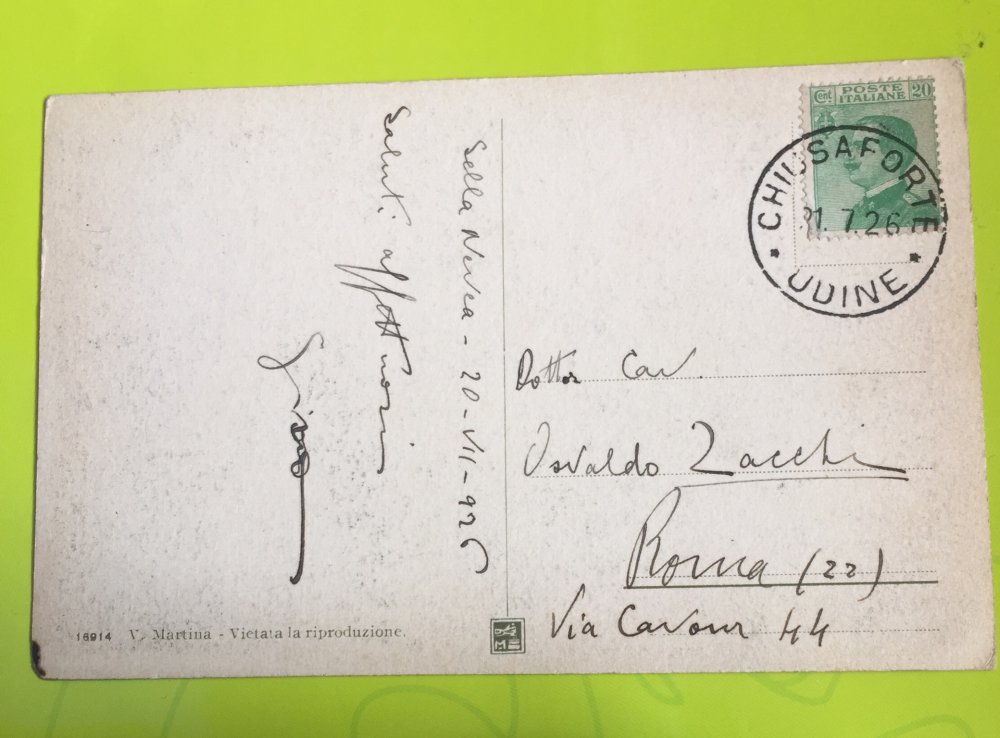 Sella Nevea - 20-VII-926
Saluti affettuosi
Cent POSTE ITALIANE 20
CHIUSAFORTE
31.7.26
* UDINE *
Dottor Cav.
Osvaldo Zacchi
Roma (22)
Via Cavour 44
16914 V. Martina - Vietata la riproduzione.